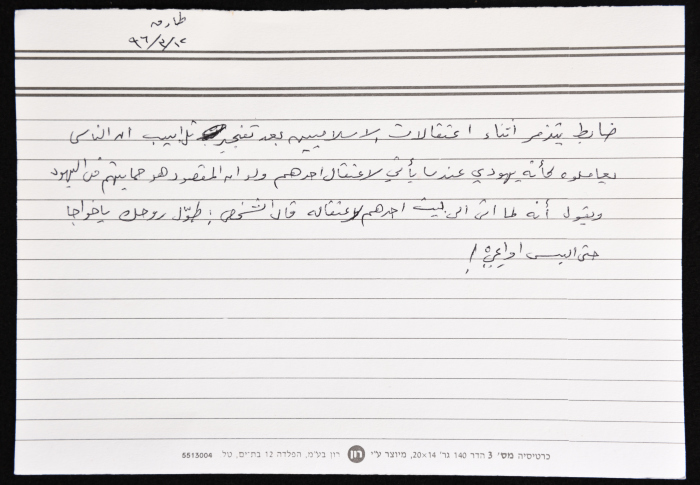 طارق
٩٦/٣/١٢
ضابط يتذمر اثناء اعتقالات الاسلاميين بعد تفجير تل ابيب ان الناس
يعاملوه كأنه يهودي عندما يأتي لاعتقال احدهم ولو ان المقصود هو حمايتهم من اليهود
ويقول أنه لما اتى الى بيت احدهم لاعتقاله قال الشخص: طوّل روحك يا خواجا
حتى البس اواعيّ!
כרטיסיה מס' 3 הדר 140 גר' 20×14, מיוצר ע"י רון רון בע"מ, הפלדה 12 בת-ים, טל 5513004